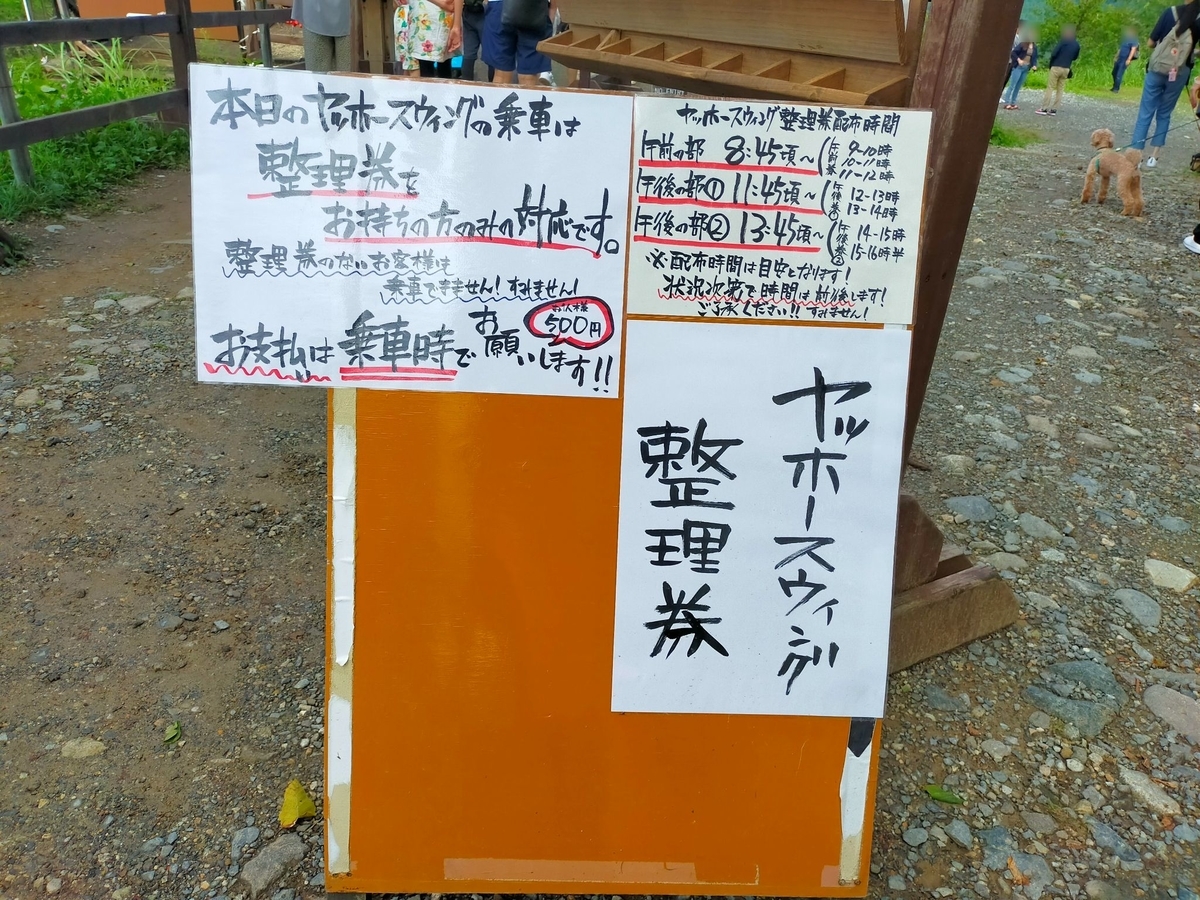 本日のヤッホースウィングの乗車は
整理券を
お持ちの方のみの対応です。
整理券のないお客様は
乗車できません!すみません!
お支払いは乗車時でお願いします!!
お一人様
500円
ヤッホースウィング整理券配布時間
午前の部 8:45頃〜(午前券 9-10時
10-11時
11-12時
午後の部① 11:45頃〜(午後券① 12-13時
13-14時
午後の部② 13:45頃〜(午後券② 14-15時
15-16時半
※配布時間は目安となります!
状況次第で時間は前後します!
ご了承ください!!すみません!
ヤッホースウィング
整理券